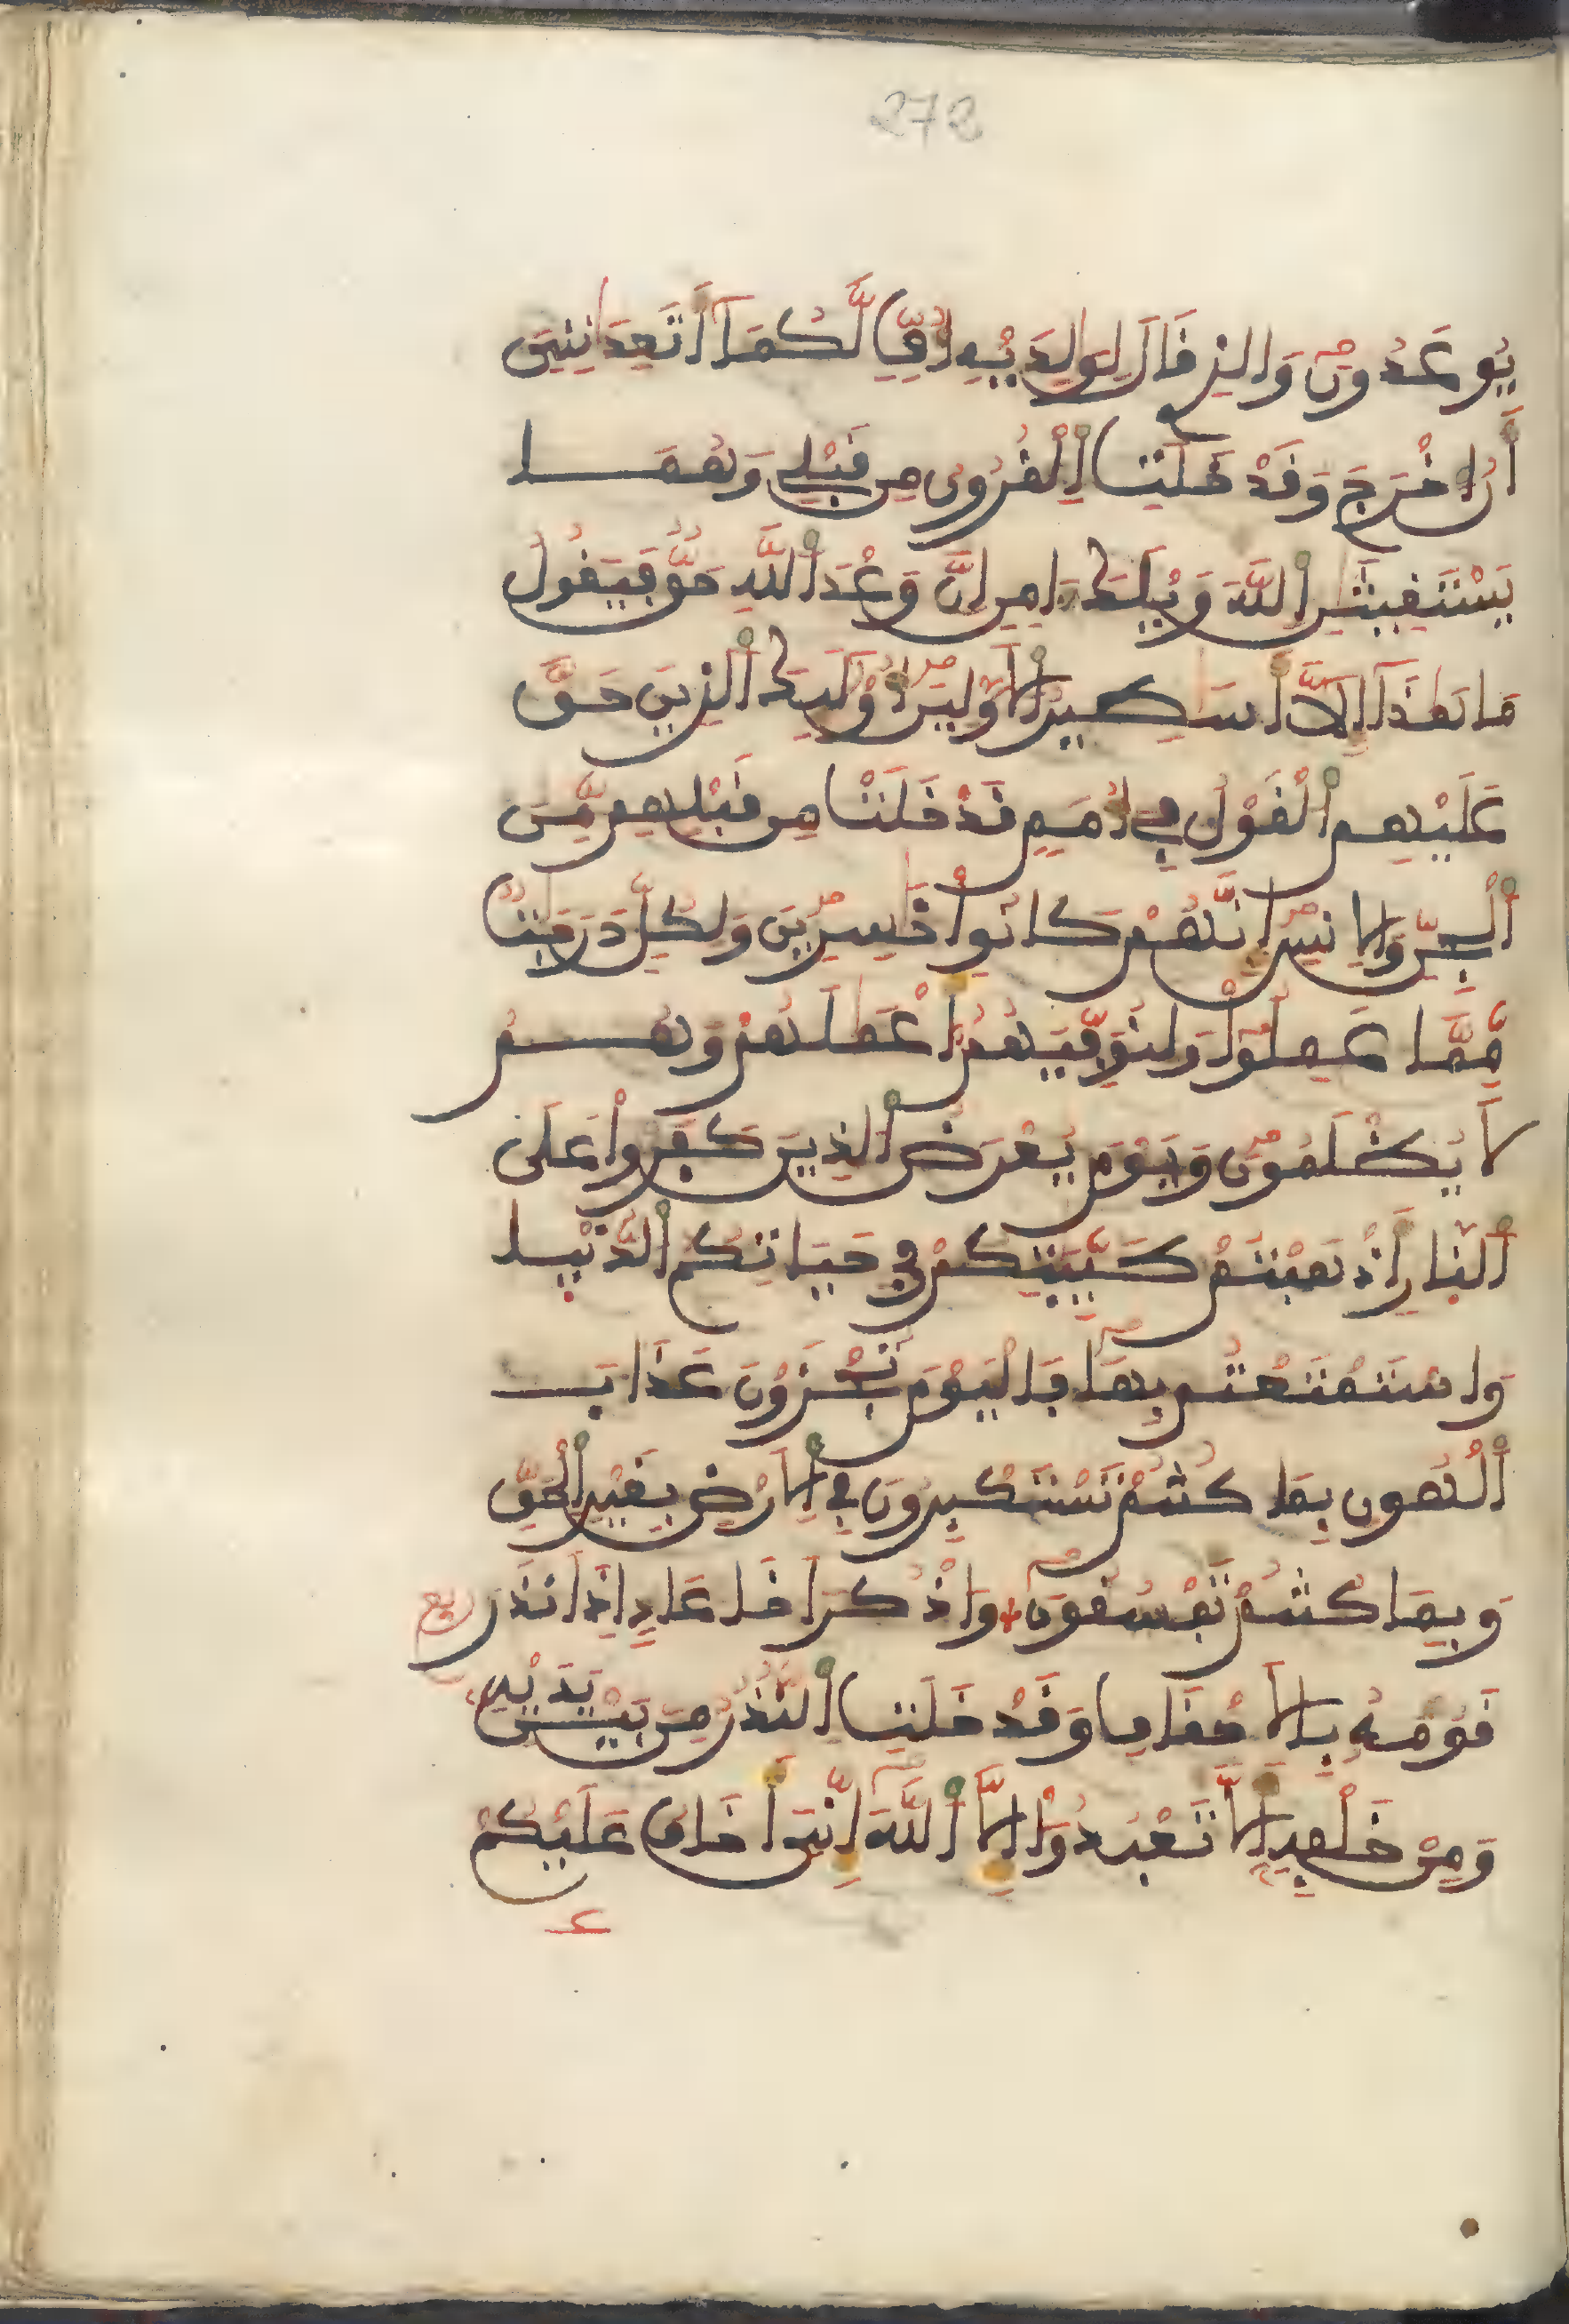 272
يُوعَدُونَ وَالذِے قَالَ لِوَٰلِدَيْهِ أُفِّ لَّكُمَآ أَتَعِدَٰنِنِيَ
أَنُ اخْرَجَ وَقَدْ خَلَتِ اِ۬لْقُرُونُ مِن قَبْلِے وَهُمَا
يَسْتَغِيثَٰنِ اِ۬للَّهَ وَيْلَكَ ءَامِنِ اِنَّ وَعْدَ اَ۬للَّهِ حَقّٞ فَيَقُولُ
مَا هَٰذَآ إِلَّآ أَسَٰطِيرُ اُ۬لَاوَّلِينَ أُوْلَٰٓئِكَ اَ۬لذِينَ حَقَّ
عَلَيْهِمُ اُ۬لْقَوْلُ فِے أُمَمٖ قَدْ خَلَتْ مِن قَبْلِهِم مِّنَ
اَ۬لْجِنِّ وَالِانسِ إِنَّهُمْ كَانُواْ خَٰسِرِينَ وَلِكُلّٖ دَرَجَٰتٞ
مِّمَّا عَمِلُواْ وَلِنُوَفِّيَهُمُۥٓ أَعْمَٰلَهُمْ وَهُمْ
لَا يُظْلَمُونَ وَيَوْمَ يُعْرَضُ اُ۬لذِينَ كَفَرُواْ عَلَى
اَ۬لنّ۪ارِ أَذْهَبْتُمْ طَيِّبَٰتِكُمْ فِے حَيَاتِكُمُ اُ۬لدُّنْيَا
وَاسْتَمْتَعْتُم بِهَا فَالْيَوْمَ تُجْزَوْنَ عَذَابَ
اَ۬لْهُونِ بِمَا كُنتُمْ تَسْتَكْبِرُونَ فِے اِ۬لَارْضِ بِغَيْرِ اِ۬لْحَقِّ
وَبِمَا كُنتُمْ تَفْسُقُونَ وَاذْكُرَ اَخَا عَادٍ اِذَ اَنذَرَ ربع
قَوْمَهُۥ بِالَاحْقَافِ وَقَدْ خَلَتِ اِ۬لنُّذُرُ مِنۢ بَيْنِ يَدَيْهِ
وَمِنْ خَلْفِهِۦٓ أَلَّا تَعْبُدُوٓاْ إِلَّا اَ۬للَّهَ إِنِّيَ أَخَافُ عَلَيْكُمْ